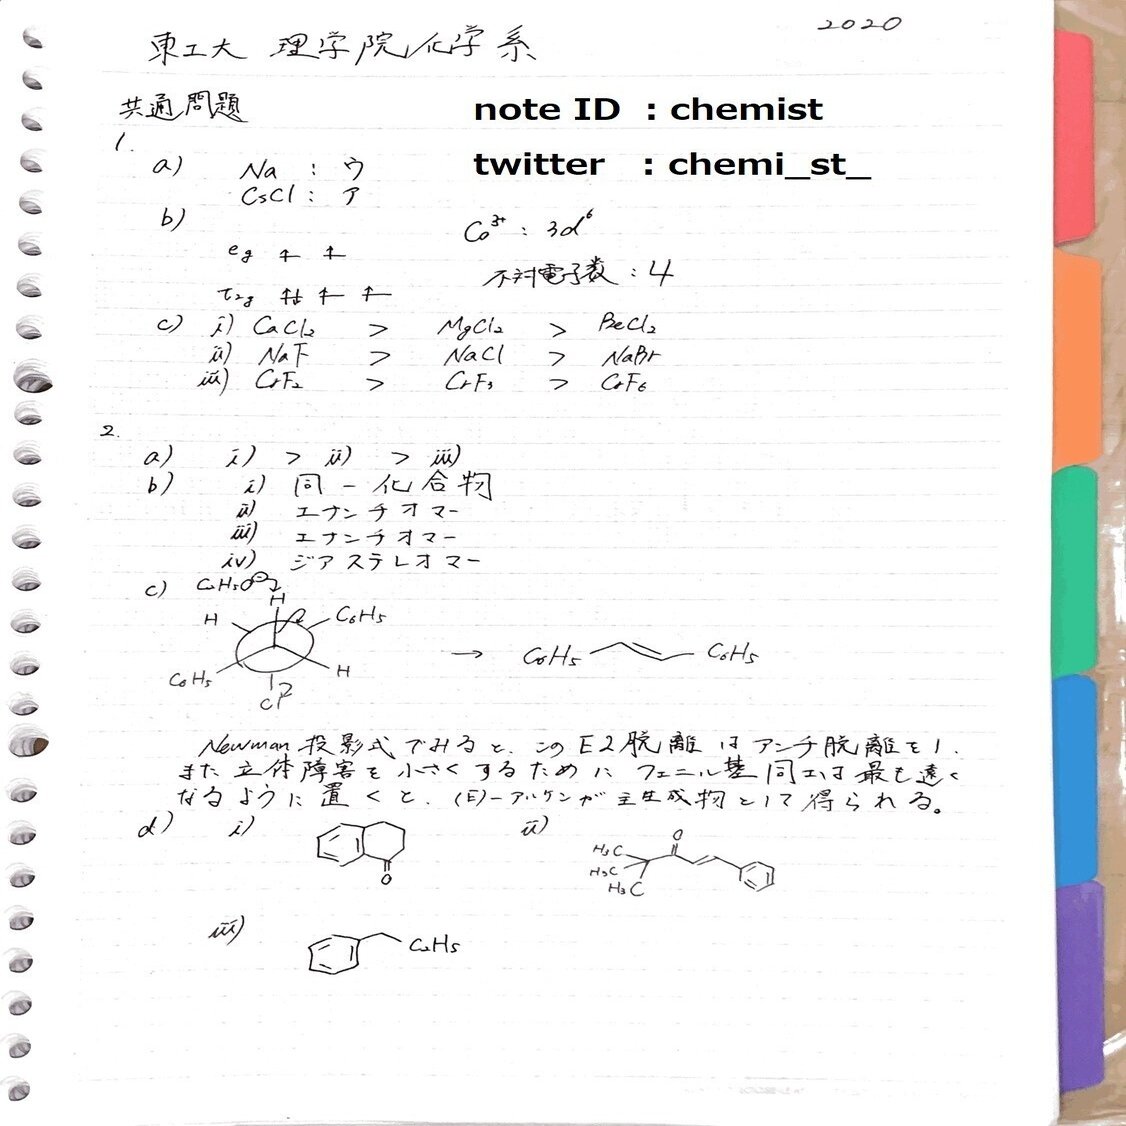 2020
東工大 理学院/化学系
共通問題
note ID : chemist
twitter : chemi_st_
1.
a) Na : ウ
CsCl : ア
b)
Co³⁺ : 3d⁶
eg ↑ ↑
不対電子数 : 4
t2g ↑↓ ↑ ↑
c) i) CaCl₂ > MgCl₂ > BeCl₂
ii) NaF > NaCl > NaBr
iii) CrF₂ > CrF₃ > CrF₆
2.
a) i) > ii) > iii)
b) i) 同一化合物
ii) エナンチオマー
iii) エナンチオマー
iv) ジアステレオマー
c) C₂H₅O⊖
H
H C₆H₅
→ C₆H₅ C₆H₅
C₆H₅ H
Cl
Newman投影式でみると、このE2脱離はアンチ脱離をし、
また立体障害を小さくするためにフェニル基同士は最も遠く
なるように置くと、(E)-アルケンが主生成物として得られる。
d) i) ii)
O
H₃C
H₃C
H₃C
O
iii)
C₂H₅